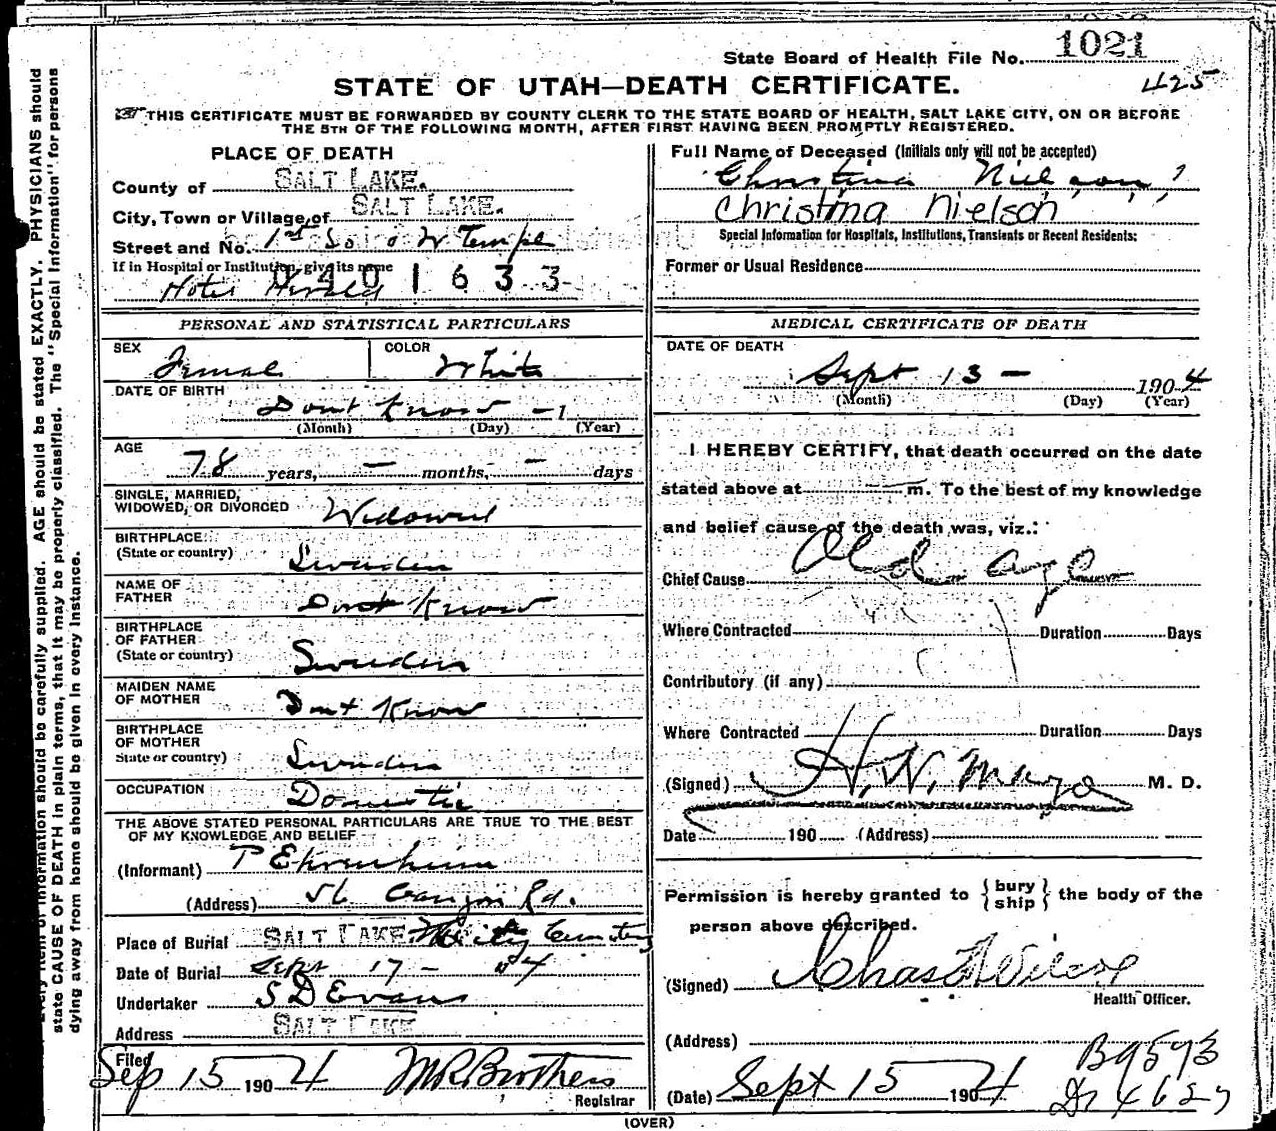 State Board of Health File No. 1021
425
STATE OF UTAH—DEATH CERTIFICATE.
THIS CERTIFICATE MUST BE FORWARDED BY COUNTY CLERK TO THE STATE BOARD OF HEALTH, SALT LAKE CITY, ON OR BEFORE
THE 5TH OF THE FOLLOWING MONTH, AFTER FIRST HAVING BEEN PROMPTLY REGISTERED.
PLACE OF DEATH
County of SALT LAKE.
City, Town or Village of SALT LAKE.
Street and No. 1st So W Temple
If in Hospital or Institution, give its name
0401633
Hotel Herald
PERSONAL AND STATISTICAL PARTICULARS
SEX Female COLOR White
DATE OF BIRTH
Dont Know
(Month) (Day) (Year)
AGE
78 years, — months, — days
SINGLE, MARRIED,
WIDOWED, OR DIVORCED Widowed
BIRTHPLACE
(State or country) Sweden
NAME OF
FATHER Dont Know
BIRTHPLACE
OF FATHER
(State or country) Sweden
MAIDEN NAME
OF MOTHER Dont Know
BIRTHPLACE
OF MOTHER
State or country) Sweden
OCCUPATION Domestic
THE ABOVE STATED PERSONAL PARTICULARS ARE TRUE TO THE BEST
OF MY KNOWLEDGE AND BELIEF
(Informant)
(Address) 56 Canyon Rd.
Place of Burial SALT LAKE City Cemetery
Date of Burial Sept 17 - 04
Undertaker S D Evans
Address SALT LAKE
Filed
Sep 15 1904 M R Brothers
Registrar
Full Name of Deceased (Initials only will not be accepted)
Christina Nielson
Christina Nielson
Special Information for Hospitals, Institutions, Transients or Recent Residents:
Former or Usual Residence
MEDICAL CERTIFICATE OF DEATH
DATE OF DEATH
Sept 13 — 1904
(Month) (Day) (Year)
I HEREBY CERTIFY, that death occurred on the date
stated above at — m. To the best of my knowledge
and belief cause of the death was, viz.:
Chief Cause Old age
Where Contracted Duration Days
Contributory (if any)
Where Contracted Duration Days
(Signed) H. N. Mayo M. D.
Date 190 (Address)
Permission is hereby granted to {bury ship} the body of the
person above described.
(Signed) Chas F Wilcox
Health Officer.
(Address)
B9573
(Date) Sept 15 1904
(OVER)
Every item of information should be carefully supplied. AGE should be stated EXACTLY. PHYSICIANS should
state CAUSE OF DEATH in plain terms, that it may be properly classified. The "Special Information" for persons
dying away from home should be given in every instance.